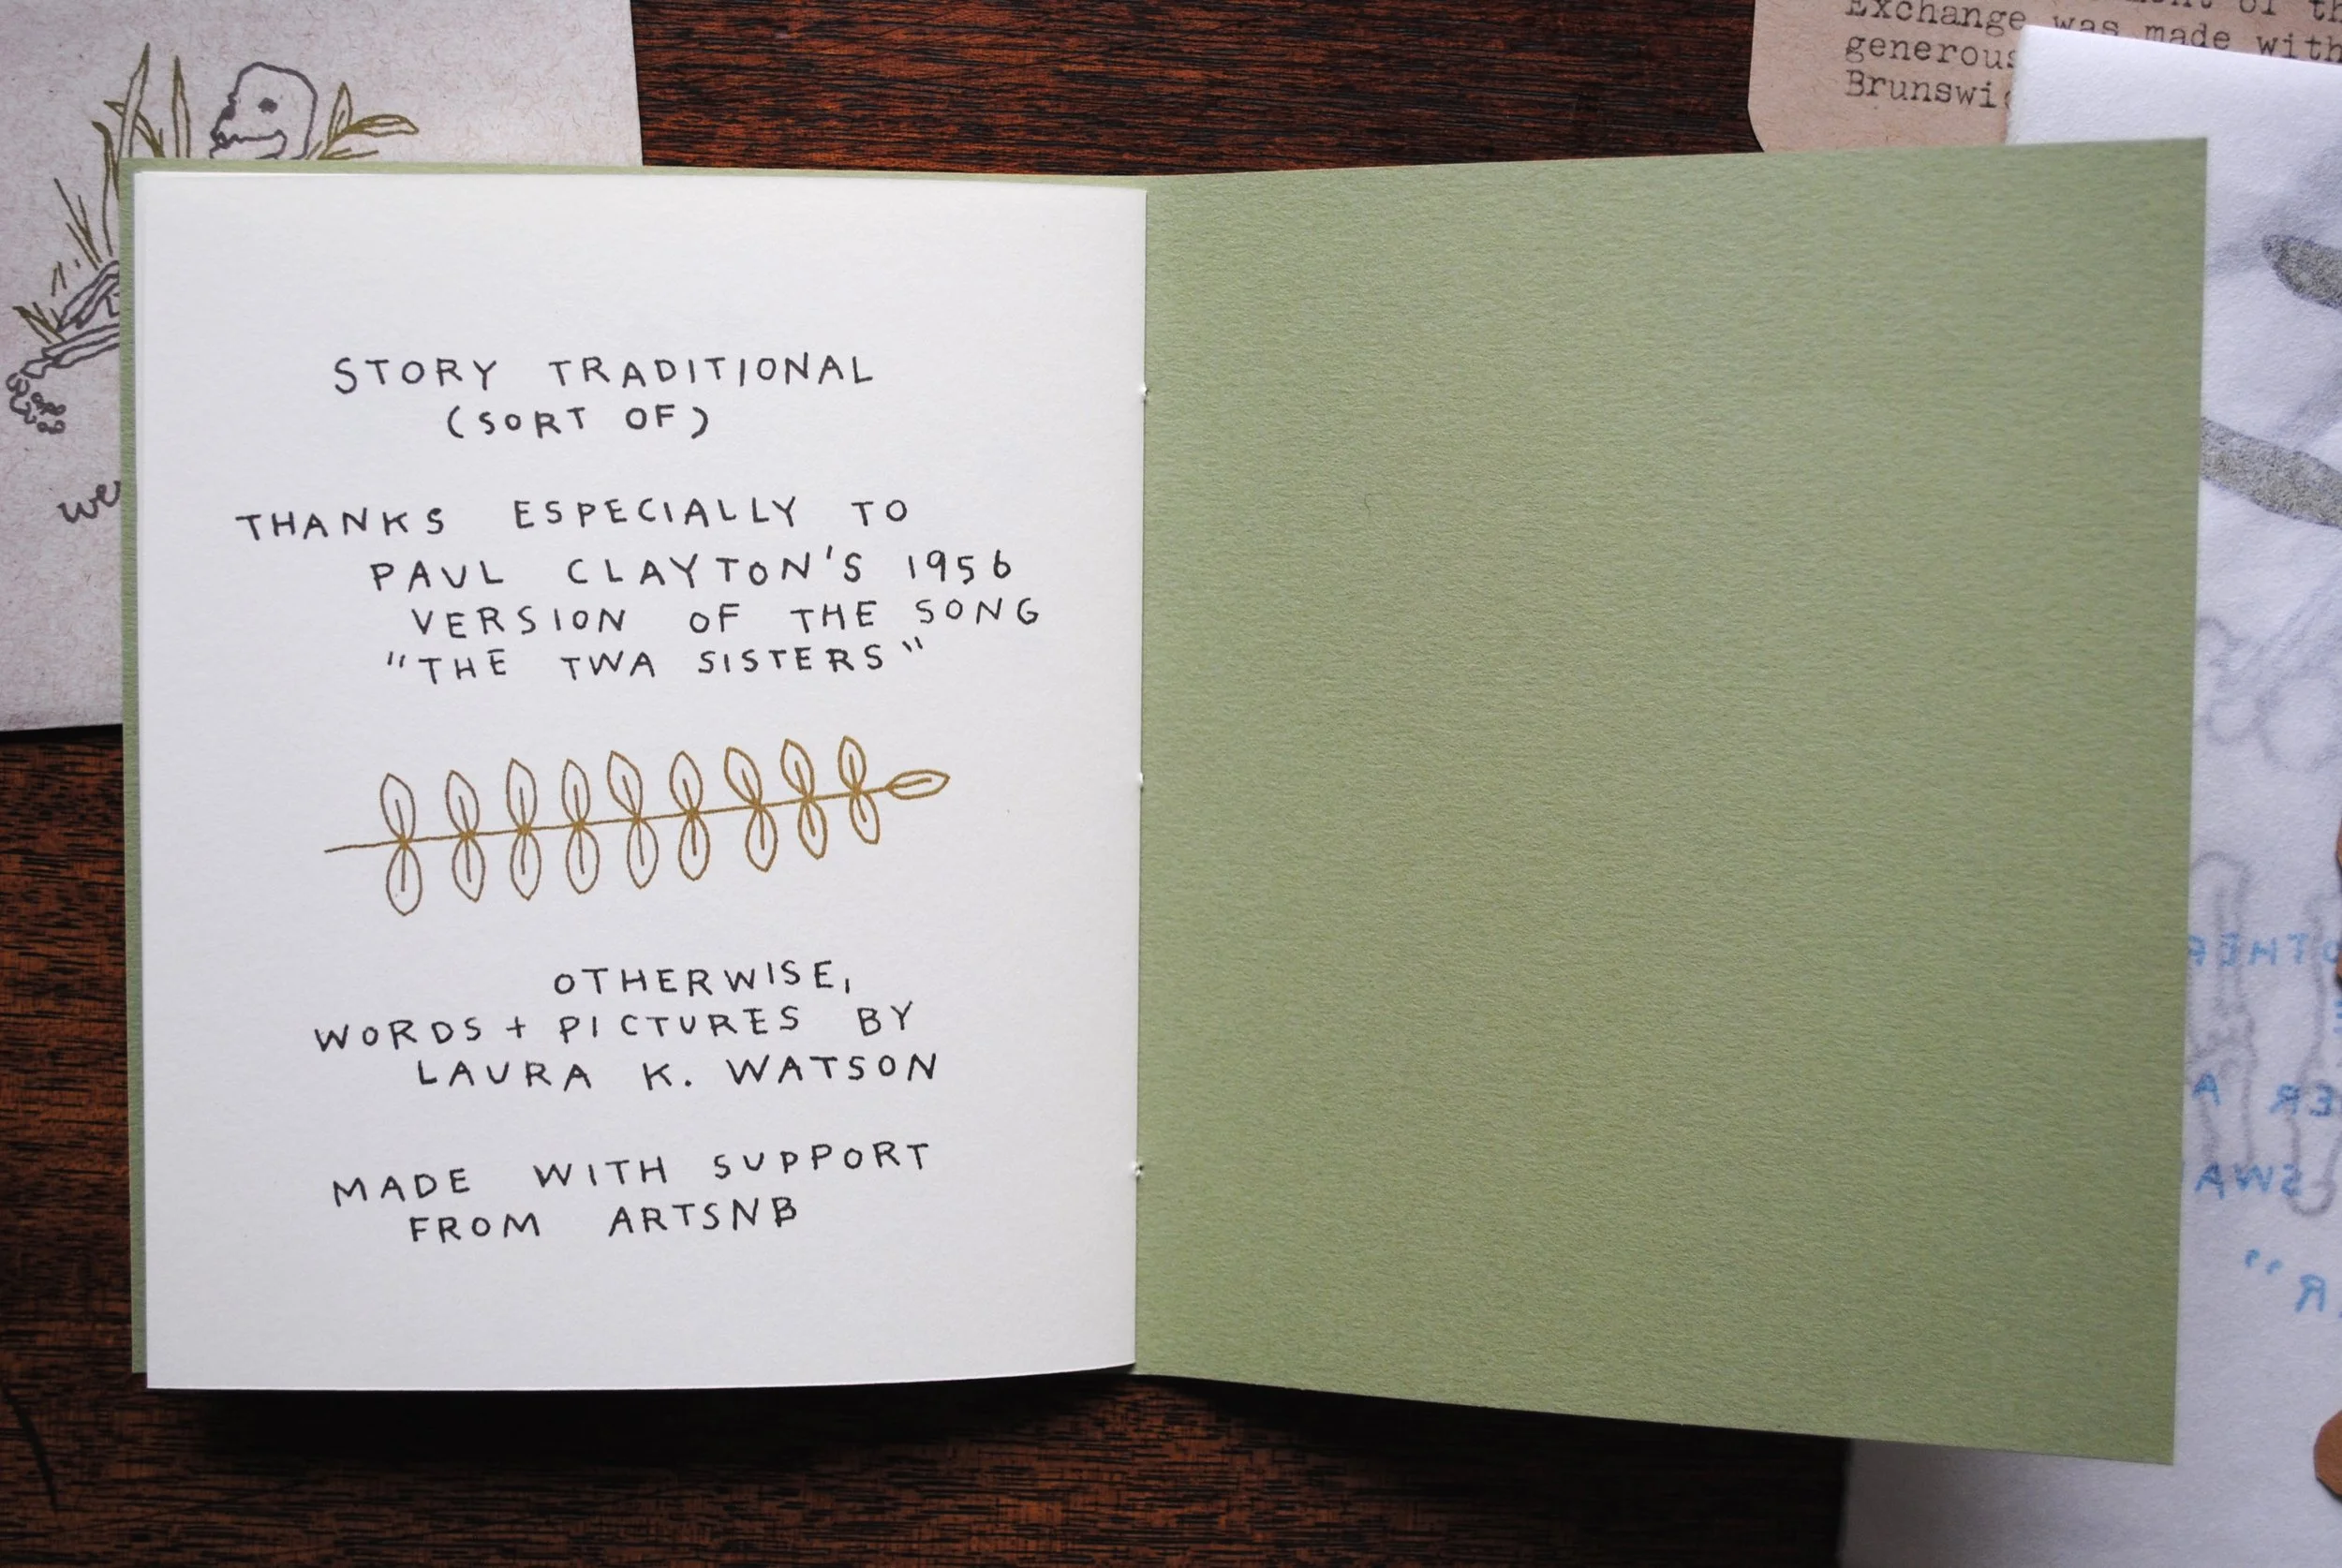 STORY TRADITIONAL
(SORT OF)
THANKS ESPECIALLY TO
PAUL CLAYTON'S 1956
VERSION OF THE SONG
"THE TWA SISTERS"
OTHERWISE,
WORDS + PICTURES BY
LAURA K. WATSON
MADE WITH SUPPORT
FROM ARTSNB
we
of
Exchange was made with
generous
Brunswi
OTHER
ER A
SWA
R"